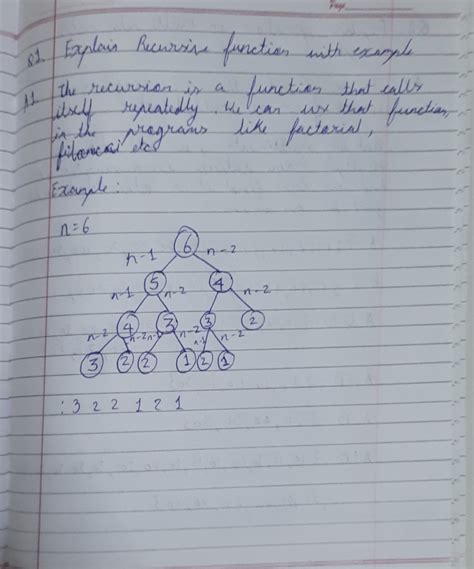 Q1. Explain Recursive function with example
A1. The recursion is a function that calls
itself repeatedly. We can use that function
in the programs like factorial,
etc
Example:
n=6
6
n-1 n-2
5 4
n-1 n-2 n-2
4 3 3 2
n-2 n-2 n-2 n-1 n-2
3 2 2 1 2 1
: 3 2 2 1 2 1